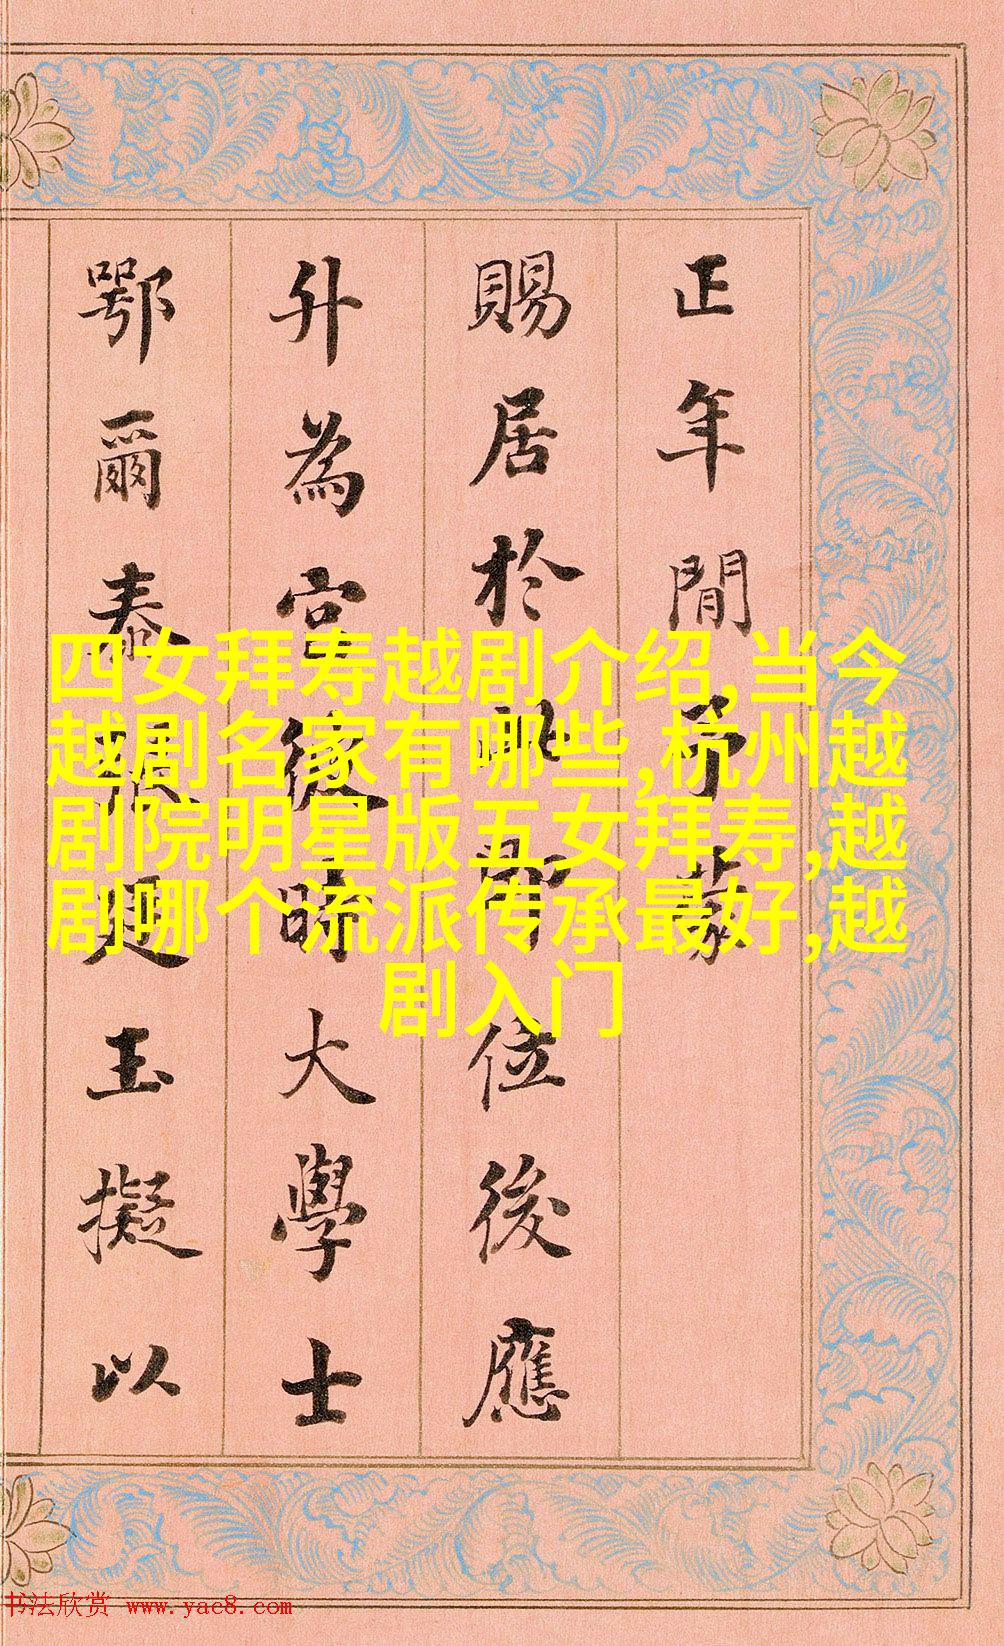 正年間予蒙
賜居於此即位後應
升為宮時大學士
鄂爾泰張廷玉擬以
四女拜寿越剧介绍,当今
越剧名家有哪些,杭州越
剧院明星版五女拜寿,越
剧哪个流派传承最好,越
剧入门
书法欣赏 www.yac8.com